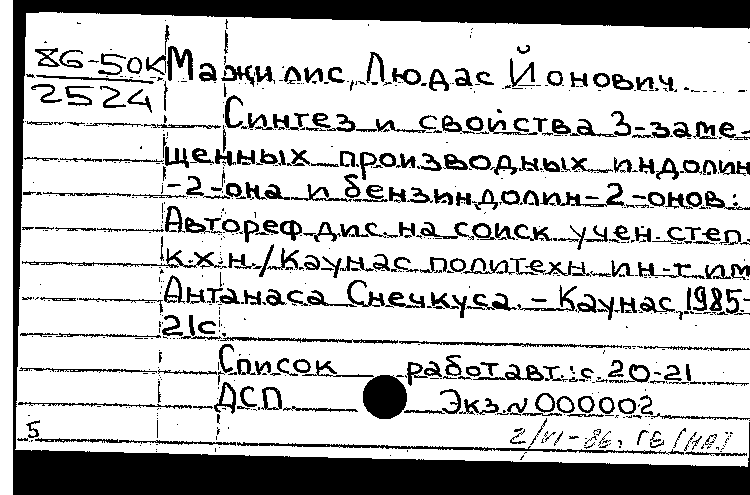 86-50к Мажилис, Людас Йонович.
2524
Синтез и свойства 3-заме-
щенных производных индолин
-2-она и бензиндолин-2-онов:
Автореф дис. на соиск учен. степ.
к.х.н./Каунас политехн ин-т им
Антанаса Снечкуса. - Каунас, 1985-
21с.
Список работ авт.: с. 20-21
ДСП Экз. N 000002
5 2/VI-86. ГБ (НА)